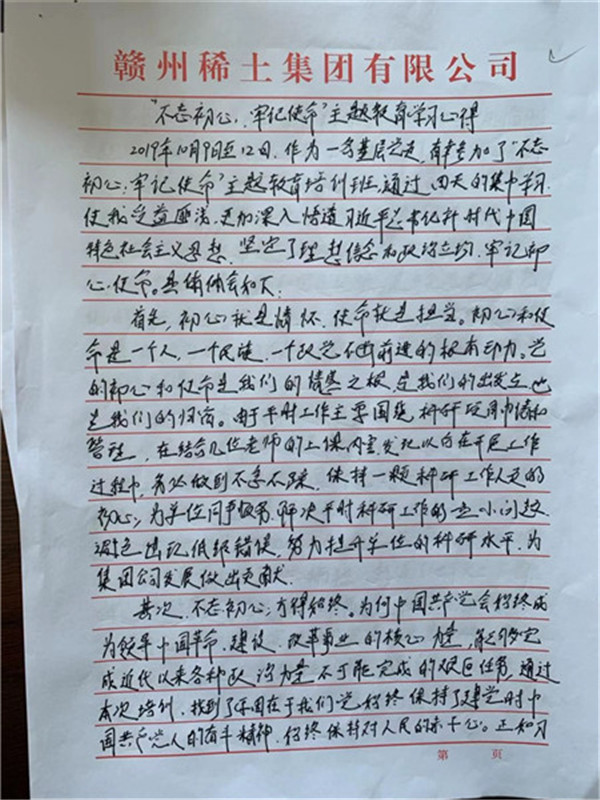 赣州稀土集团有限公司
“不忘初心、牢记使命”主题教育学习心得
2019年10月9日至12日，作为一名基层党员，有幸参加了“不忘
初心、牢记使命”主题教育培训班，通过四天的集中学习，
使我受益匪浅，更加深入悟透习近平总书记新时代中国
特色社会主义思想，坚定了理想信念和政治立场，牢记初
心、使命。具体体会如下：
首先，初心就是情怀，使命就是担当。初心和使
命是一个人，一个民族，一个政党不断前进的根本动力。党
的初心和使命是我们的情感之根，是我们的出发点，也
是我们的归宿。由于平时工作主要围绕科研项目申请和
管理，在结合几位老师的上课内容，发现以后在开展工作
过程中，务必做到不急不躁，保持一颗科研工作人员的
初心，为单位同事服务，解决平时科研工作的些小问题，
避免出现低级错误，努力提升单位的科研水平，为
集团公司发展做出贡献。
其次，不忘初心，方得始终。为何中国共产党会始终成
为领导中国革命、建设、改革事业的核心力量，能够完
成近代以来各种政治力量不可能完成的艰巨任务，通过
本次培训，找到了原因在于我们党始终保持了建党时中
国共产党人的奋斗精神，始终保持对人民的赤子心。正如习
第 页